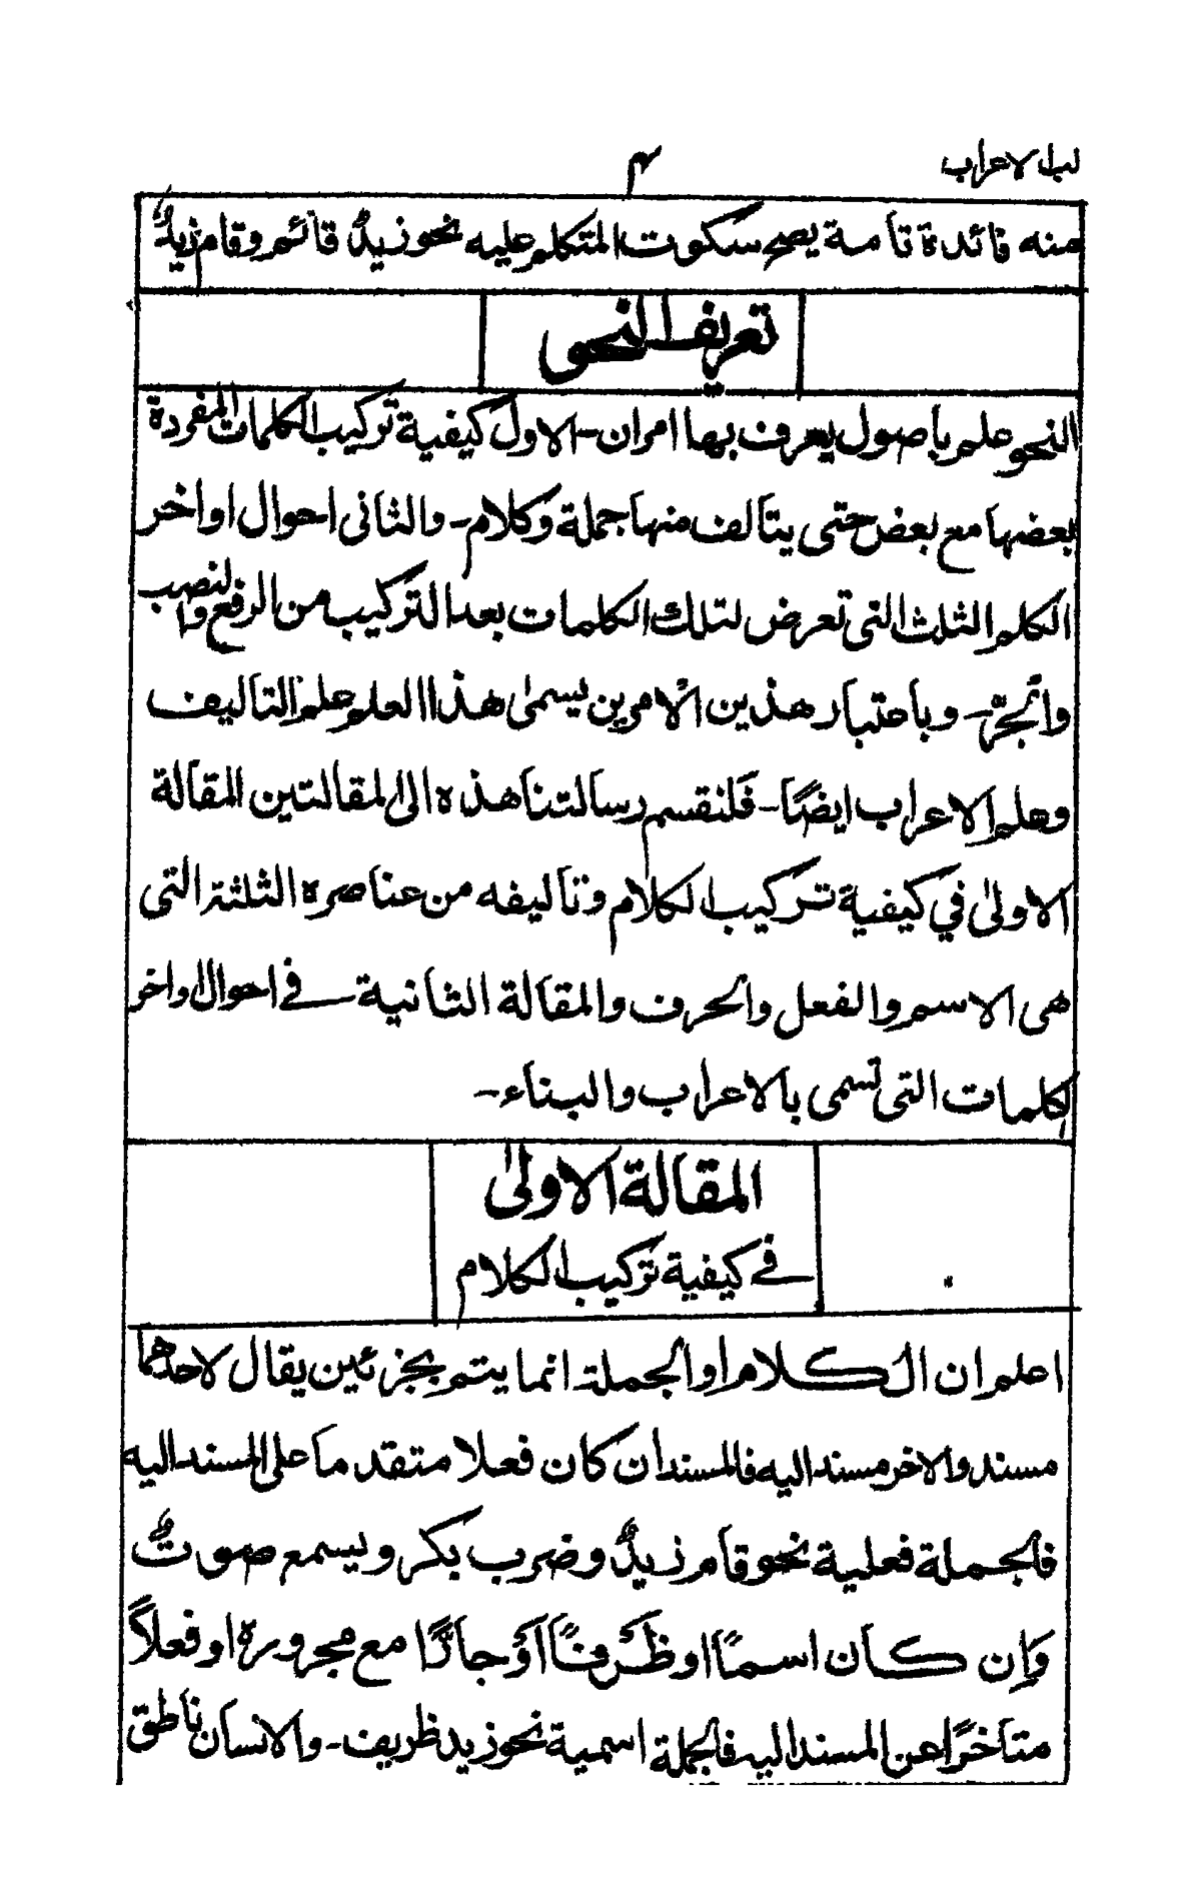 لب الاعراب
۴
منه فائدة تامة يصح سكوت المتكلم عليه نحو زيدٌ قائم وقام زيدٌ
تعريف النحو
النحو علم باصول يعرف بها امران - الاول كيفية تركيب الكلمات المفردة
بعضها مع بعض حتى يتالف منها جملة وكلام - والثانى احوال اواخر
الكلم الثلث التى تعرض لتلك الكلمات بعد التركيب من الرفع والنصب
والجرّ - وباعتبار هذين الامرين يسمى هذا العلم علم التاليف
وعلم الاعراب ايضًا - فلنقسم رسالتنا هذه الى المقالتين المقالة
الاولىٰ في كيفية تركيب الكلام وتاليفه من عناصره الثلثة التى
هى الاسم والفعل والحرف والمقالة الثانية فى احوال اواخر
لكلمات التى تسمى بالاعراب والبناء -
المقالة الاولىٰ
فى كيفية تركيب الكلام
اعلم ان الكلام او الجملة انما يتم بجزئين يقال لاحدهما
مسند والاخر مسند اليه فالمسند ان كان فعلا متقدما على المسند اليه
فالجملة فعلية نحو قام زيدٌ وضرب بكر ويسمع صوتٌ
وَاِن كان اسمًا او ظَرفًا اَوْ جارًّا مع مجروره او فعلاً
متاخرًا عن المسند اليه فالجملة اسمية نحو زيد ظريف - والانسان ناطق